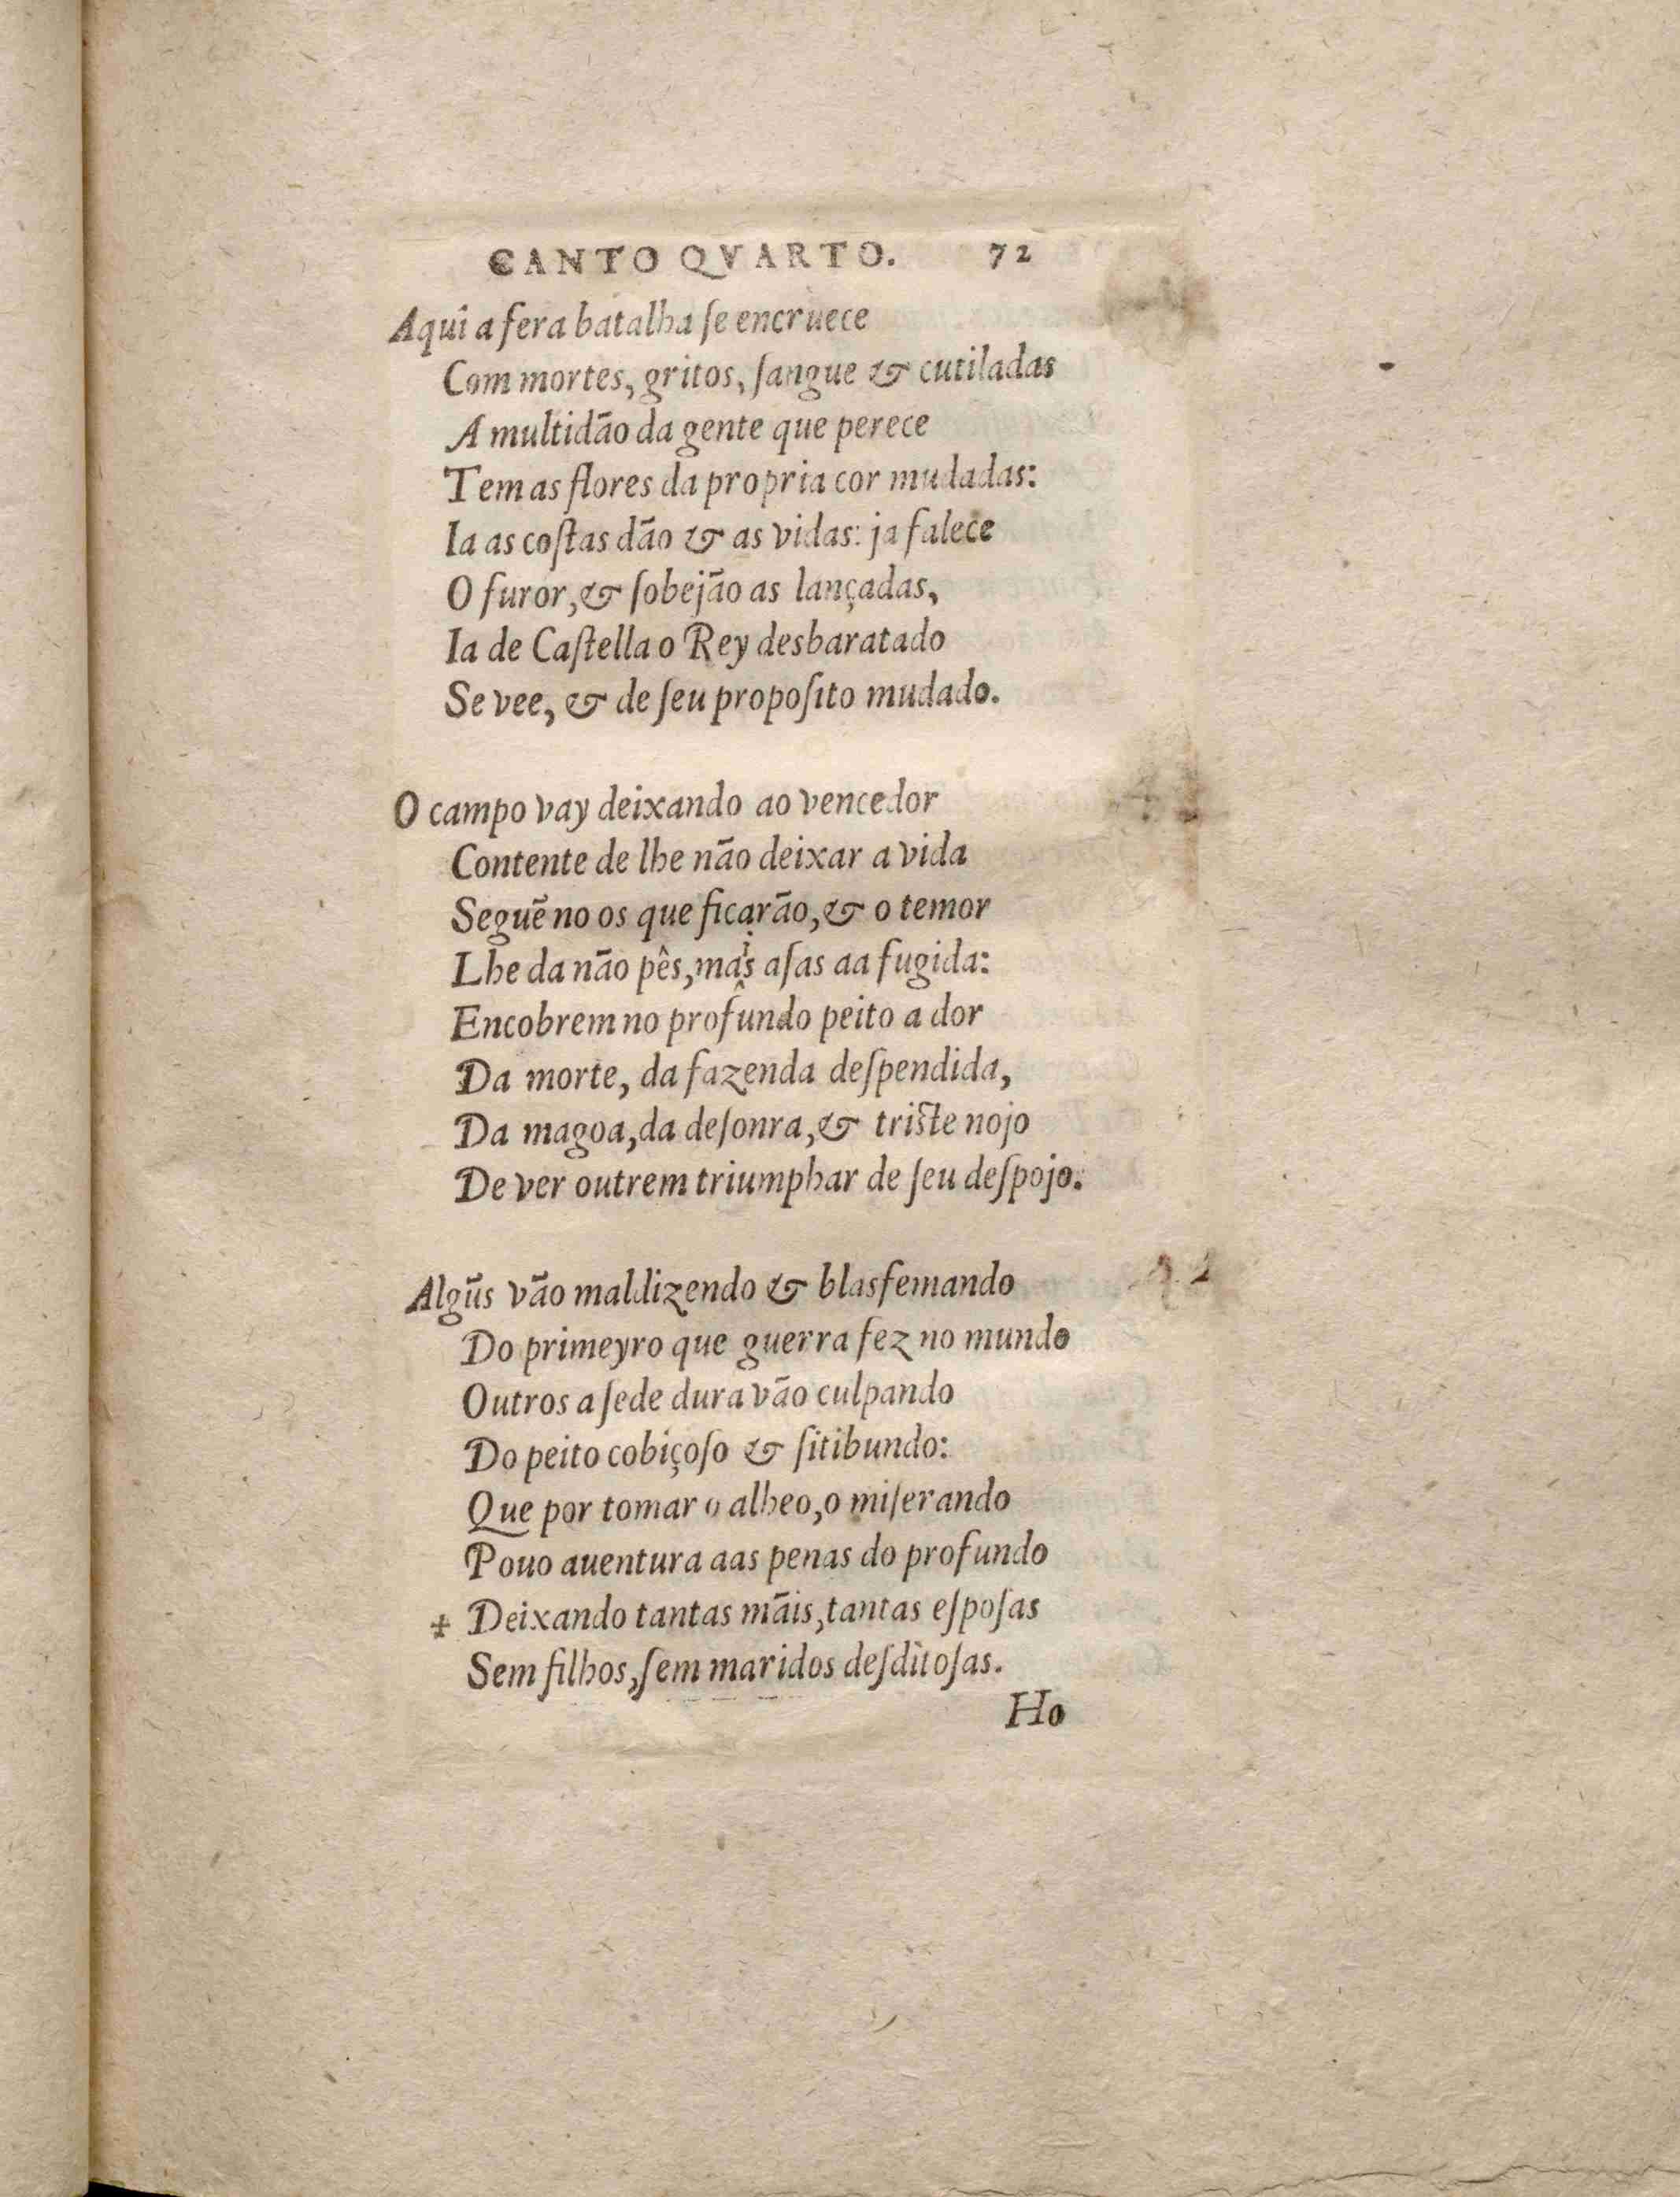 CANTO QVARTO. 72
Aqui a fera batalha ſe encruece
Com mortes, gritos, ſangue & cutiladas
A multidão da gente que perece
Tem as flores da propria cor mudadas:
Ia as coſtas dão & as vidas: ja falece
O furor, & ſobejão as lançadas,
Ia de Caſtella o Rey desbaratado
Se vee, & de ſeu propoſito mudado.
O campo vay deixando ao vencedor
Contente de lhe não deixar a vida
Seguẽ no os que ficarão, & o temor
Lhe da não pês, mais aſas aa fugida:
Encobrem no profundo peito a dor
Da morte, da fazenda deſpendida,
Da magoa, da deſonra, & triſte nojo
De ver outrem triumphar de ſeu deſpojo.
Algũs vão maldizendo & blasfemando
Do primeyro que guerra fez no mundo
Outros a ſede dura vão culpando
Do peito cobiçoſo & ſitibundo:
Que por tomar o alheo, o miſerando
Pouo auentura aas penas do profundo
Deixando tantas mãis, tantas eſpoſas
Sem filhos, ſem maridos deſditoſas.
Ho